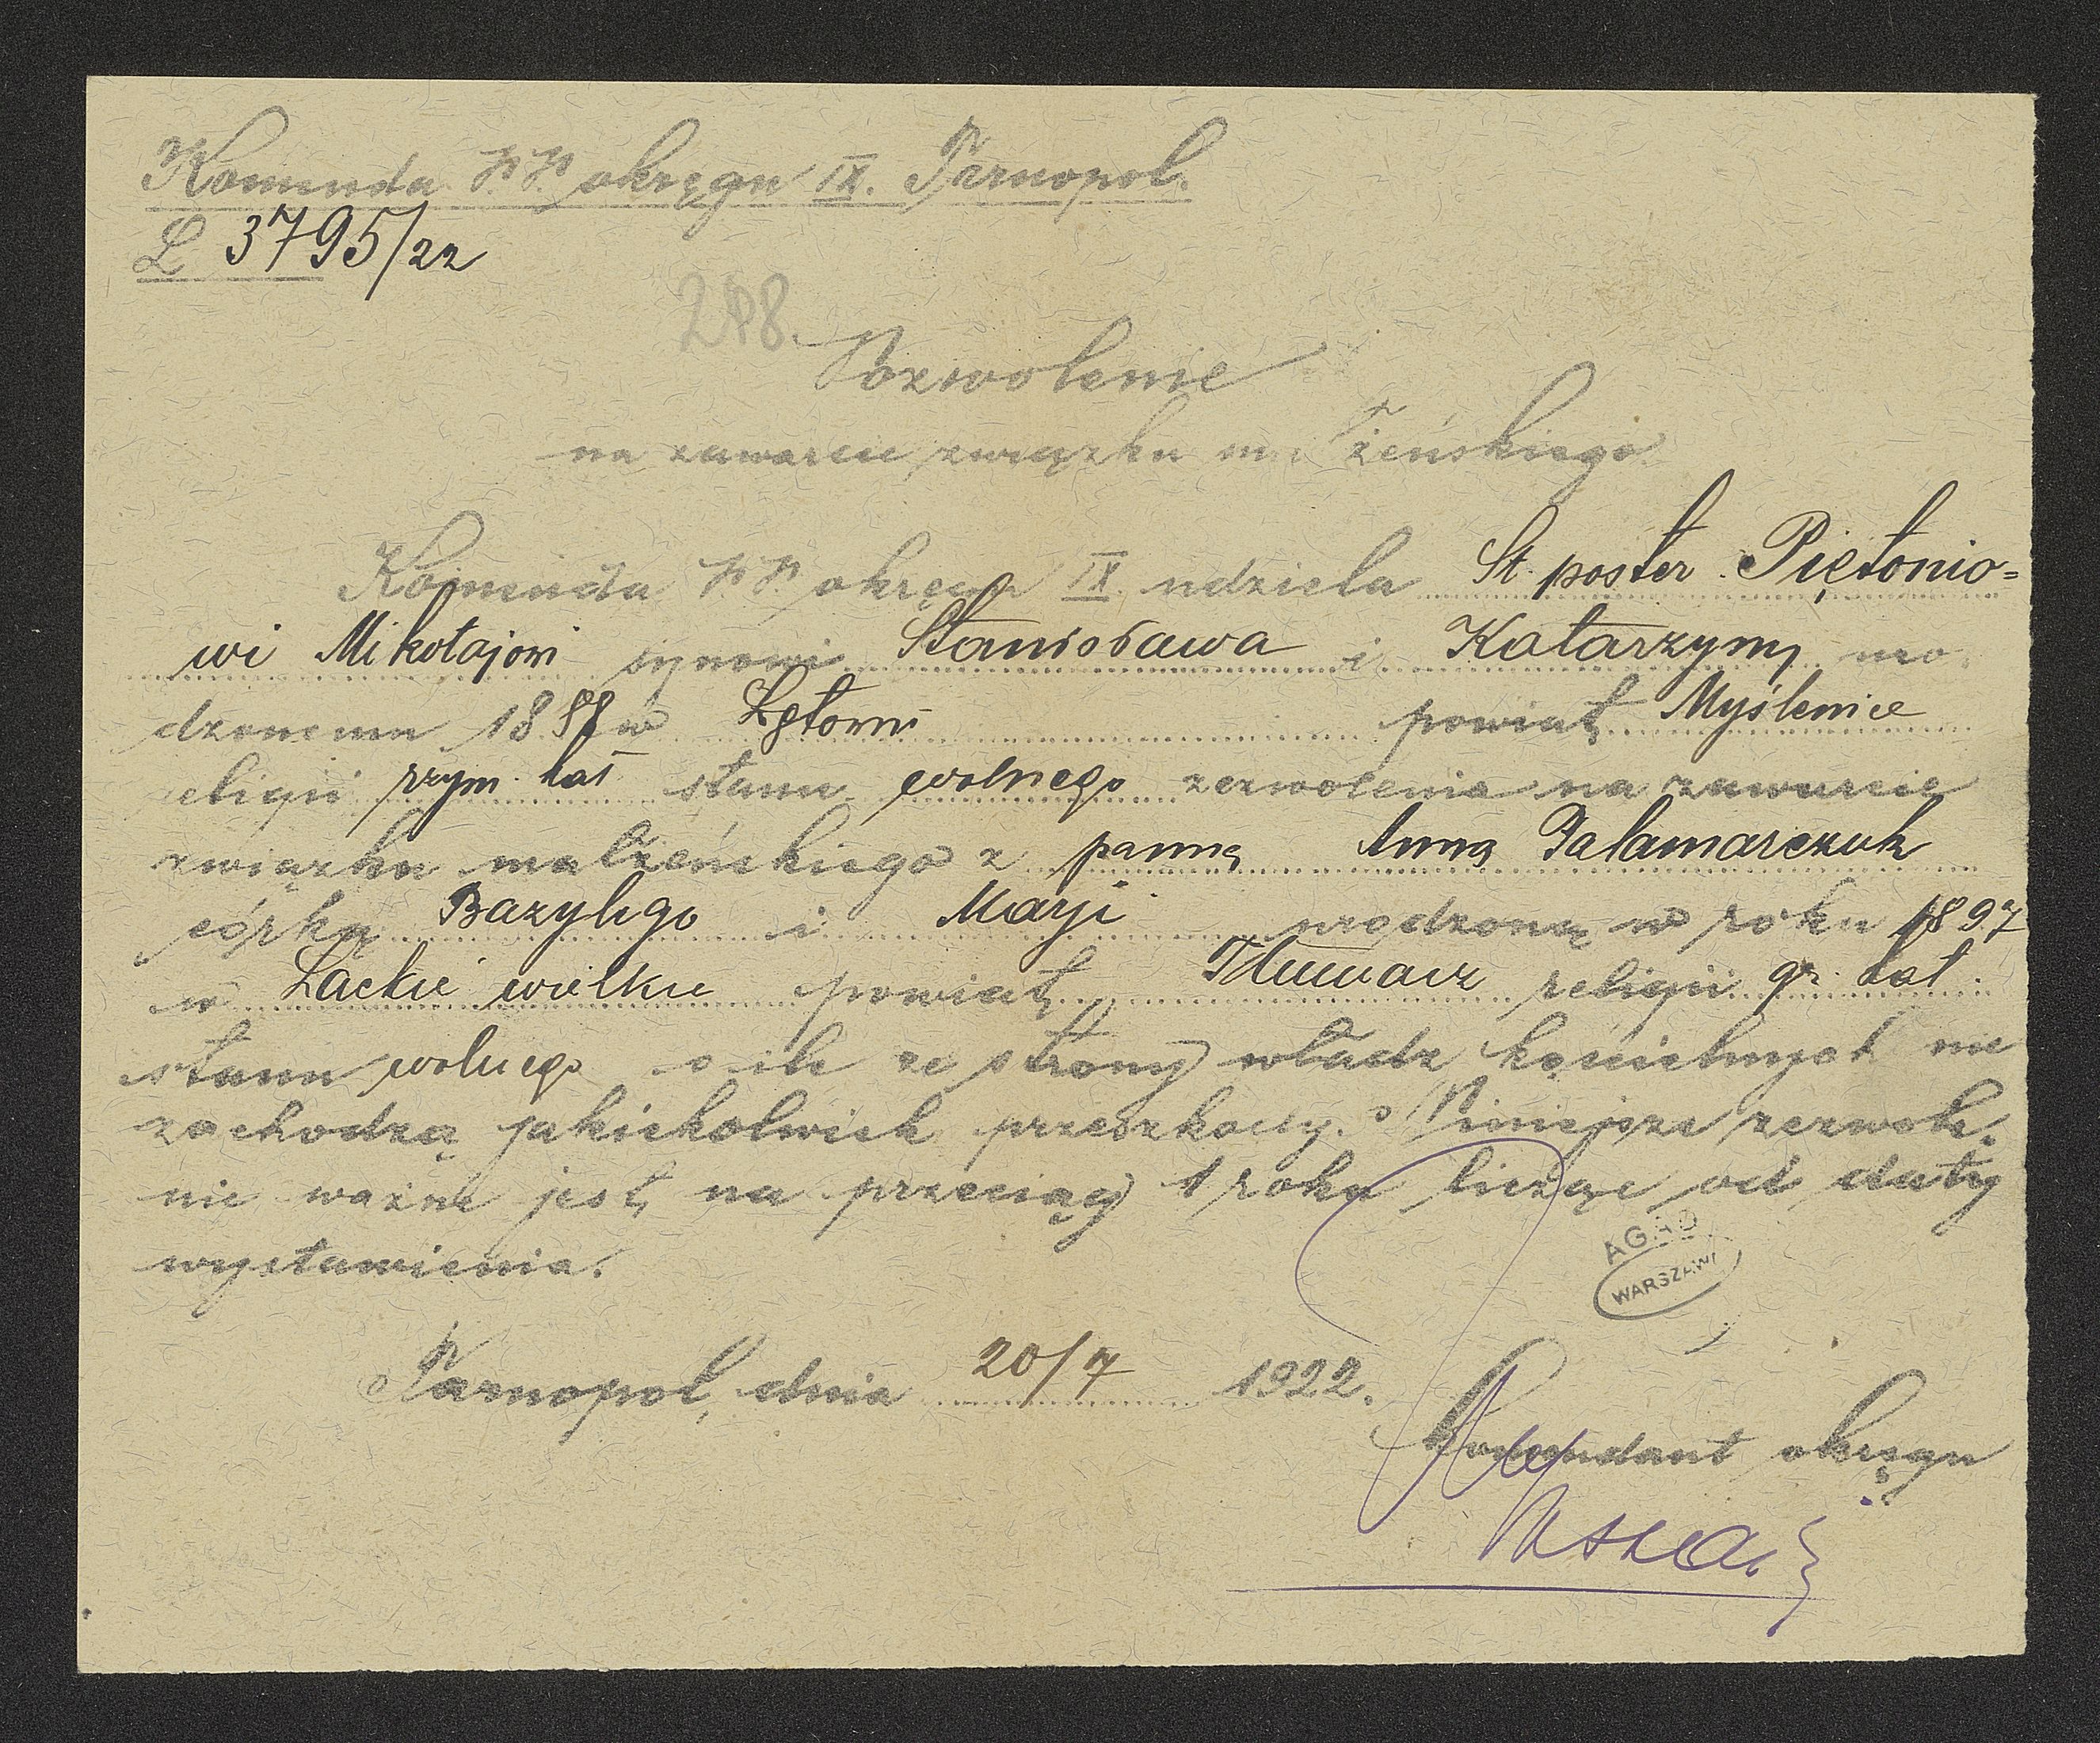 Komenda P.P. okręgu IX. Tarnopol.
L 3795/22
288.
Pozwolenie
na zawarcie związku małżeńskiego
Komenda P.P. okręgu IX. udziela St. poster. Piętonio=
wi Mikołajowi synowi Stanisława i Katarzyny uro-
dzonemu 1888 w powiat Myślenice
religii rzym. kat stanu wolnego zezwolenia na zawarcie
związku małżeńskiego z panną Anną Palamarczuk
córką Bazylego i Maryi urodzoną w roku 1897
w Lackie wielkie powiat Tłumacz religii gr. kat.
stanu wolnego o ile ze strony władz kościelnych nie
zachodzą jakiekolwiek przeszkody. Niniejsze zezwole-
nie ważne jest na przeciąg 1 roku licząc od daty
wystawienia.
Tarnopol, dnia 20/7 1922.
AGAD
WARSZAWA
Komendant okręgu